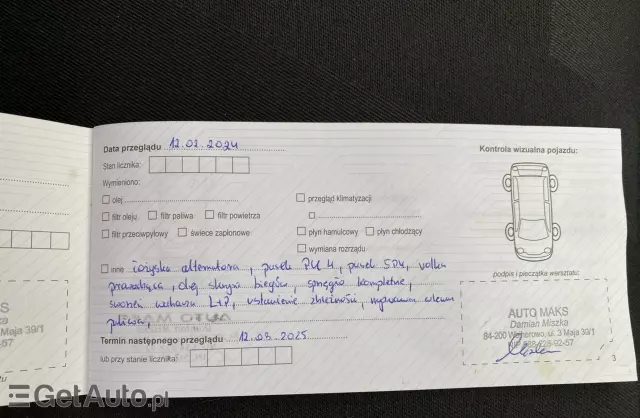 Data przeglądu 12.02.2024
Kontrola wizualna pojazdu:
Stan licznika:
Wymieniono:
olej
przegląd klimatyzacji
filtr oleju filtr paliwa filtr powietrza
filtr przeciwpyłowy świece zapłonowe
płyn hamulcowy płyn chłodzący
wymiana rozrządu
inne łożyska alternatora, pasek PK 4, pasek 5PK, rolka
prowadząca, olej skrzyni biegów, sprzęgło kompletne,
sworzeń wahacza L+P, ustawienie zbieżności,
paliwa,
podpis i pieczątka warsztatu:
AUTO MAKS
Damian Miszka
84-200 Wejherowo, ul. 3 Maja 39/1
NIP 588-228-92-57
Termin następnego przeglądu 12.03.2025
lub przy stanie licznika:
3
Maja 39/1
-57
GetAuto.pl